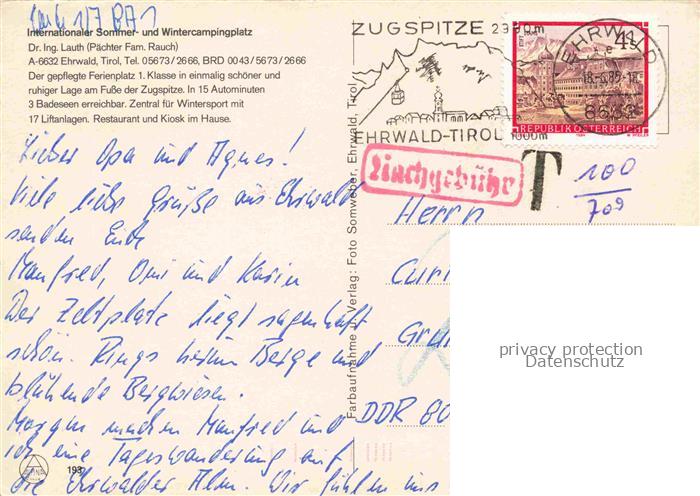 Internationaler Sommer- und Wintercampingplatz
Dr. Ing. Lauth (Pächter Fam. Rauch)
A-6632 Ehrwald, Tirol, Tel. 05673/2666, BRD 0043/5673/2666
Der gepflegte Ferienplatz 1. Klasse in einmalig schöner und
ruhiger Lage am Fuße der Zugspitze. In 15 Autominuten
3 Badeseen erreichbar. Zentral für Wintersport mit
17 Liftanlagen. Restaurant und Kiosk im Hause.
Lieber Opa und Agnes!
Viele liebe Grüße aus Ehrwald
senden Euch
Manfred, Omi und Karin
Der Zeltplatz liegt sagenhaft
schön. Rings herum Berge und
blühende Bergwiesen.
Morgen machen Manfred und
ich eine Tageswanderung auf
die Ehrwalder Alm. Wir fühlen uns
193
Farbaufnahme u. Verlag: Foto Somweber, Ehrwald, Tirol
ZUGSPITZE 2950m
EHRWALD-TIROL 1000m
EHRWALD
18.-6.85-18
6632
4 S
REPUBLIK ÖSTERREICH
Nachgebühr
T
100
709
Herrn
Curt
DDR 80
privacy protection
Datenschutz